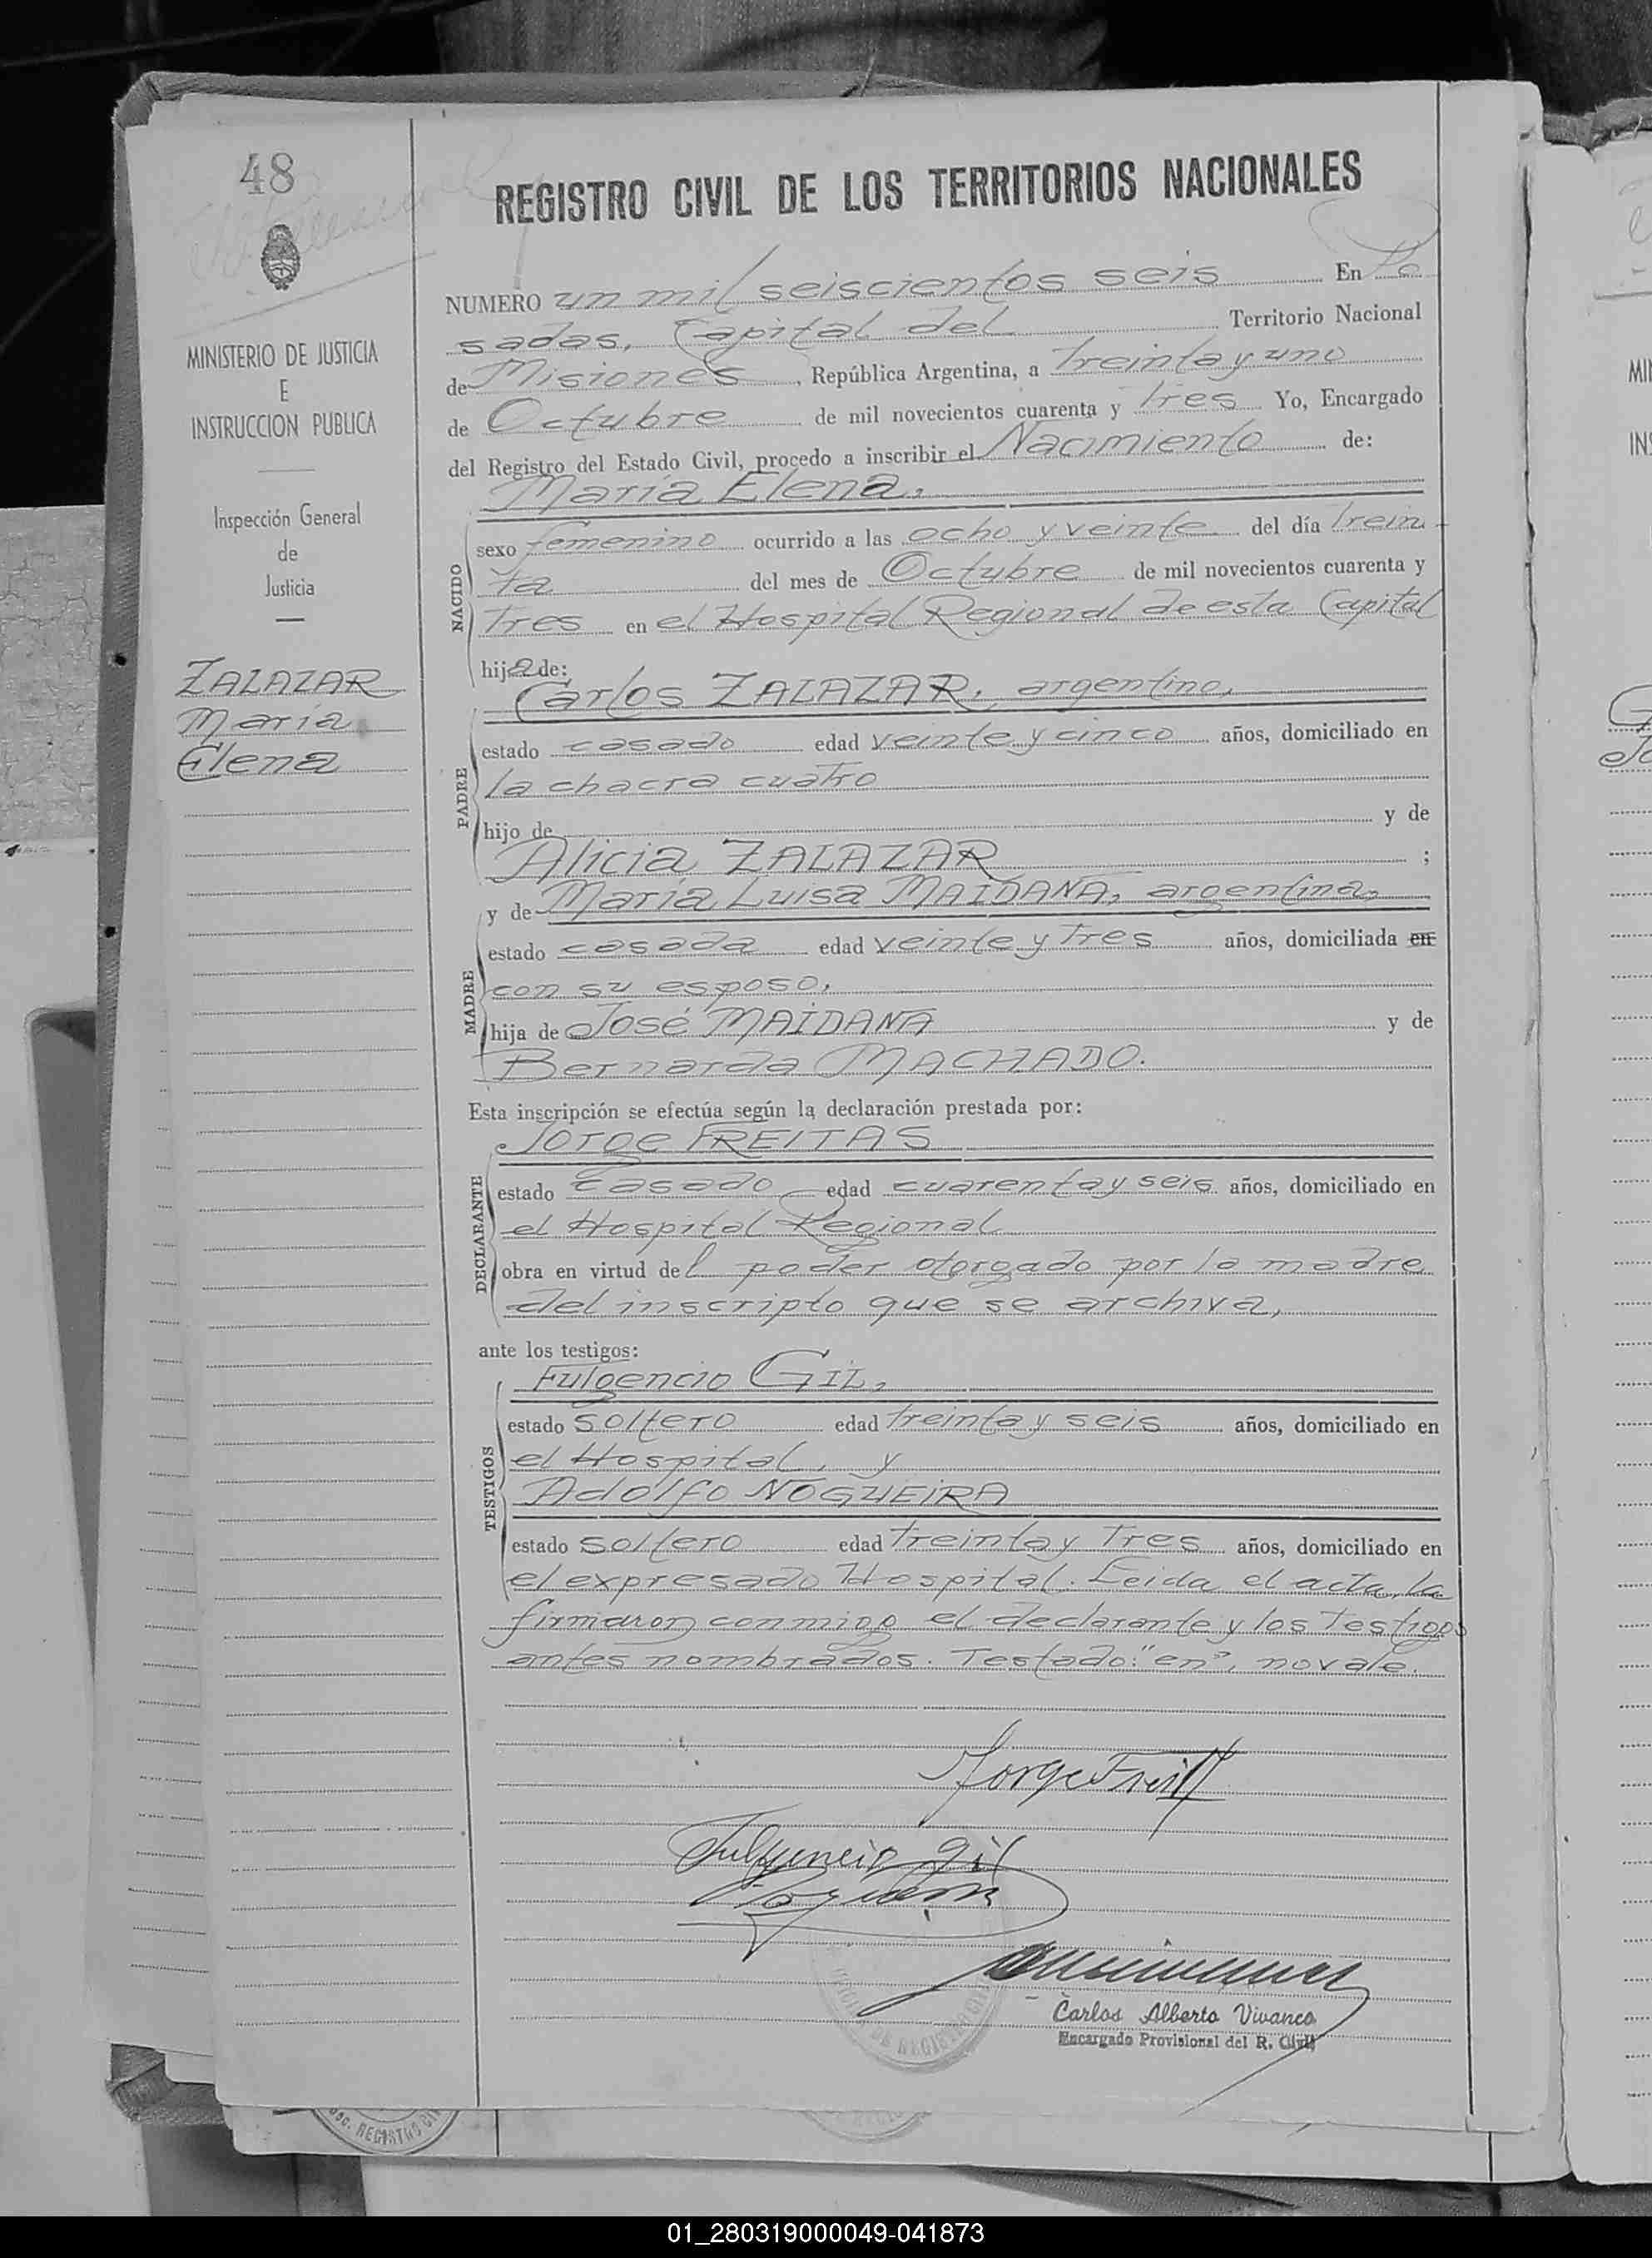 48
REGISTRO CIVIL DE LOS TERRITORIOS NACIONALES
MINISTERIO DE JUSTICIA
E
INSTRUCCION PUBLICA
Inspección General
de
Justicia
ZALAZAR
María
Elena
NUMERO un mil seiscientos seis En Po
sadas, Capital del Territorio Nacional
de Misiones, República Argentina, a treinta y uno
de Octubre de mil novecientos cuarenta y tres Yo, Encargado
del Registro del Estado Civil, procedo a inscribir el Nacimiento de:
María Elena,
NACIDO
sexo femenino ocurrido a las ocho y veinte del día trein-
ta del mes de Octubre de mil novecientos cuarenta y
tres en el Hospital Regional de esta Capital
hija de:
Carlos ZALAZAR, argentino,
PADRE
estado casado edad veinte y cinco años, domiciliado en
la chacra cuatro
hijo de y de
Alicia ZALAZAR ;
y de María Luisa MAIDANA, argentina,
MADRE
estado casada edad veinte y tres años, domiciliada en
con su esposo,
hija de José MAIDANA y de
Bernarda MACHADO.
Esta inscripción se efectúa según la declaración prestada por:
Jorge FREITAS
DECLARANTE
estado casado edad cuarenta y seis años, domiciliado en
el Hospital Regional
obra en virtud del poder otorgado por la madre
del inscripto que se archiva,
ante los testigos:
Fulgencio GIL,
TESTIGOS
estado soltero edad treinta y seis años, domiciliado en
el Hospital, y
Adolfo NOGUEIRA
estado soltero edad treinta y tres años, domiciliado en
el expresado Hospital. Leida el acta, la
firmaron conmigo el declarante y los testigos
antes nombrados. Testado: "en", no vale.
Jorge
Fulgencio Gil
Carlos Alberto Vivanco
Encargado Provisional del R. Civil
REGISTRO
01_280319000049-041873